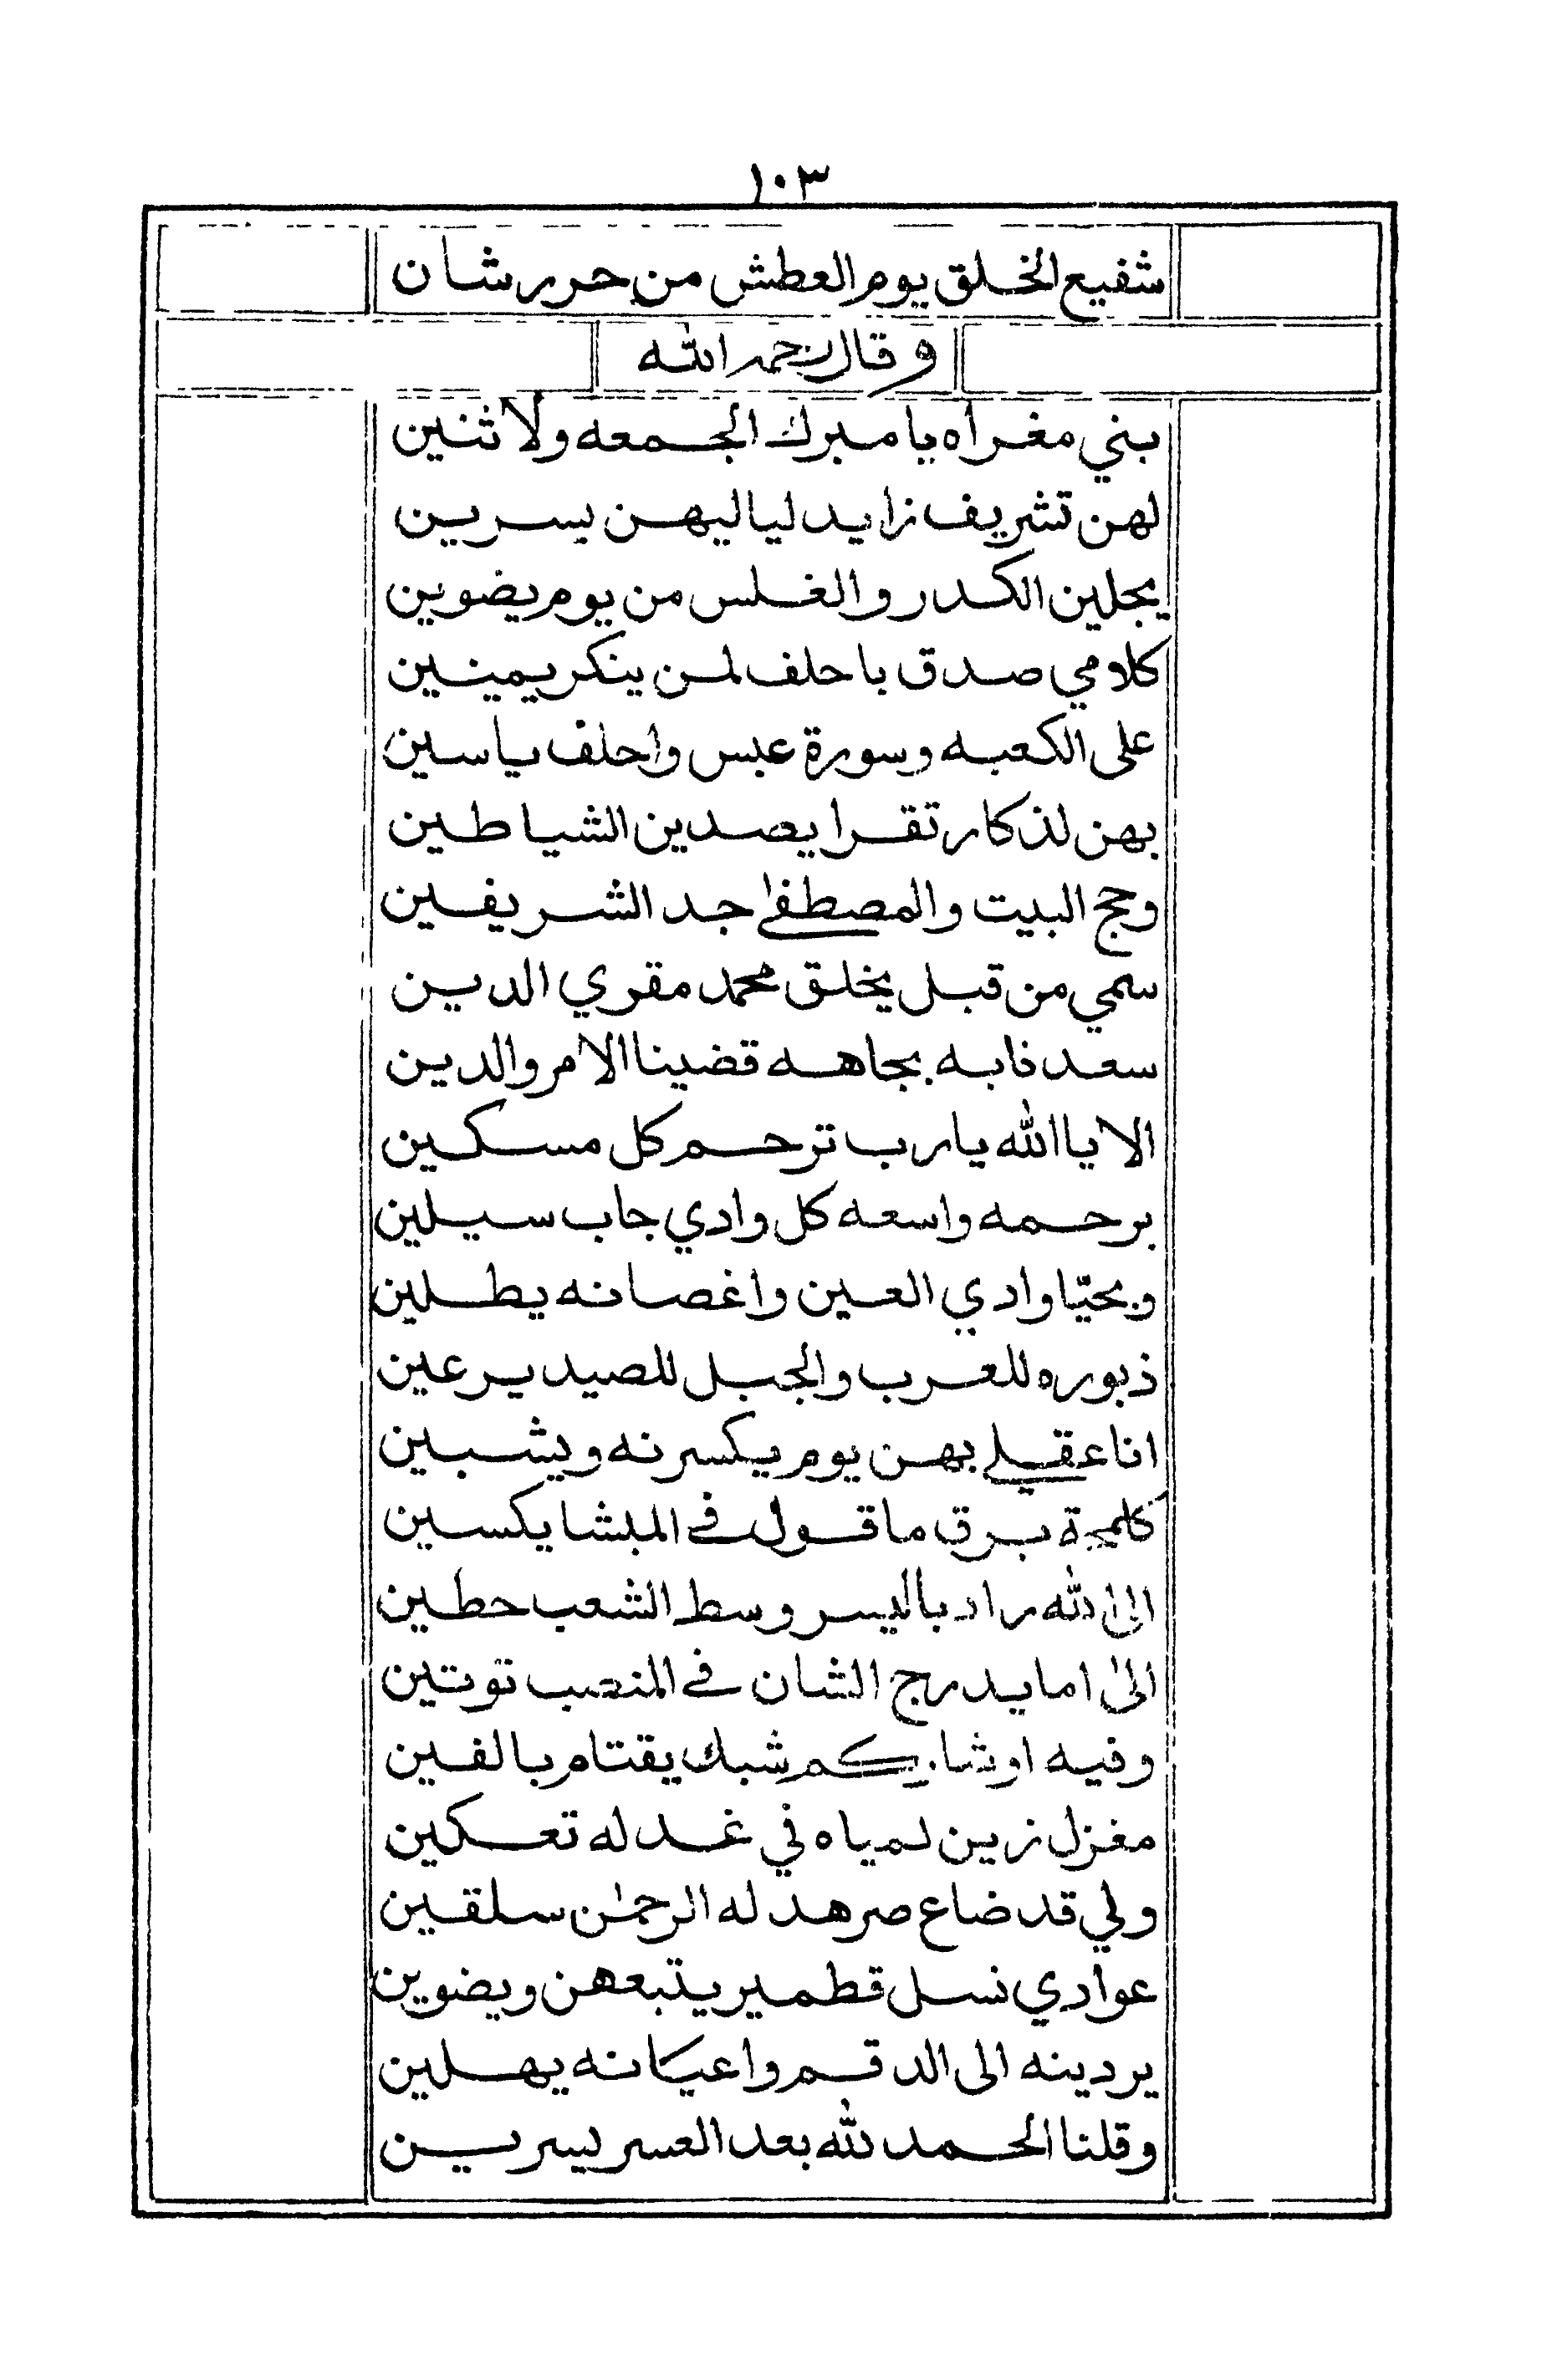 ١٠٣
شفيع الخلق يوم العطش من حررشان
وقال رحمه الله
بني مغراه يا مبرك الجمعه ولاثنين
لهن تشريف زايد لياليهن يسرين
يجلين الكدر والغلس من يوم يضوين
كلامي صدق باحلف لمن ينكر يمينين
على الكعبه وسورة عبس واحلف ياسين
بهن لذكار تقرا يصدين الشياطين
وحج البيت والمصطفى جد الشريفين
سمي من قبل يخلق محمد مقري الدين
سعدنا به بجاهه قضينا الامر والدين
الا يا الله يارب ترحم كل مسكين
برحمه واسعه كل وادي جاب سيلين
ويحيّا وادي العين واغصانه يطلين
ذبوره للعرب والجبل للصيد يرعين
انا عقلي بهن يوم يكسرنه ويشبين
كلمجة برق ما قول في المبشا يكسين
الى الله راد باليسر وسط الشعب حطين
الى اما يدرج الشان في المنصب توتين
وفيه اوشار كم شبك يقتام بالفين
مغزل زين لمياه في غدله تعكين
ولي قد ضاع صرهد له الرحمن سلقين
عوادي نسل قطمير يتبعهن ويضوين
يردينه الى الدقم واعيانه يهلين
وقلنا الحمد لله بعد العسر يسرين